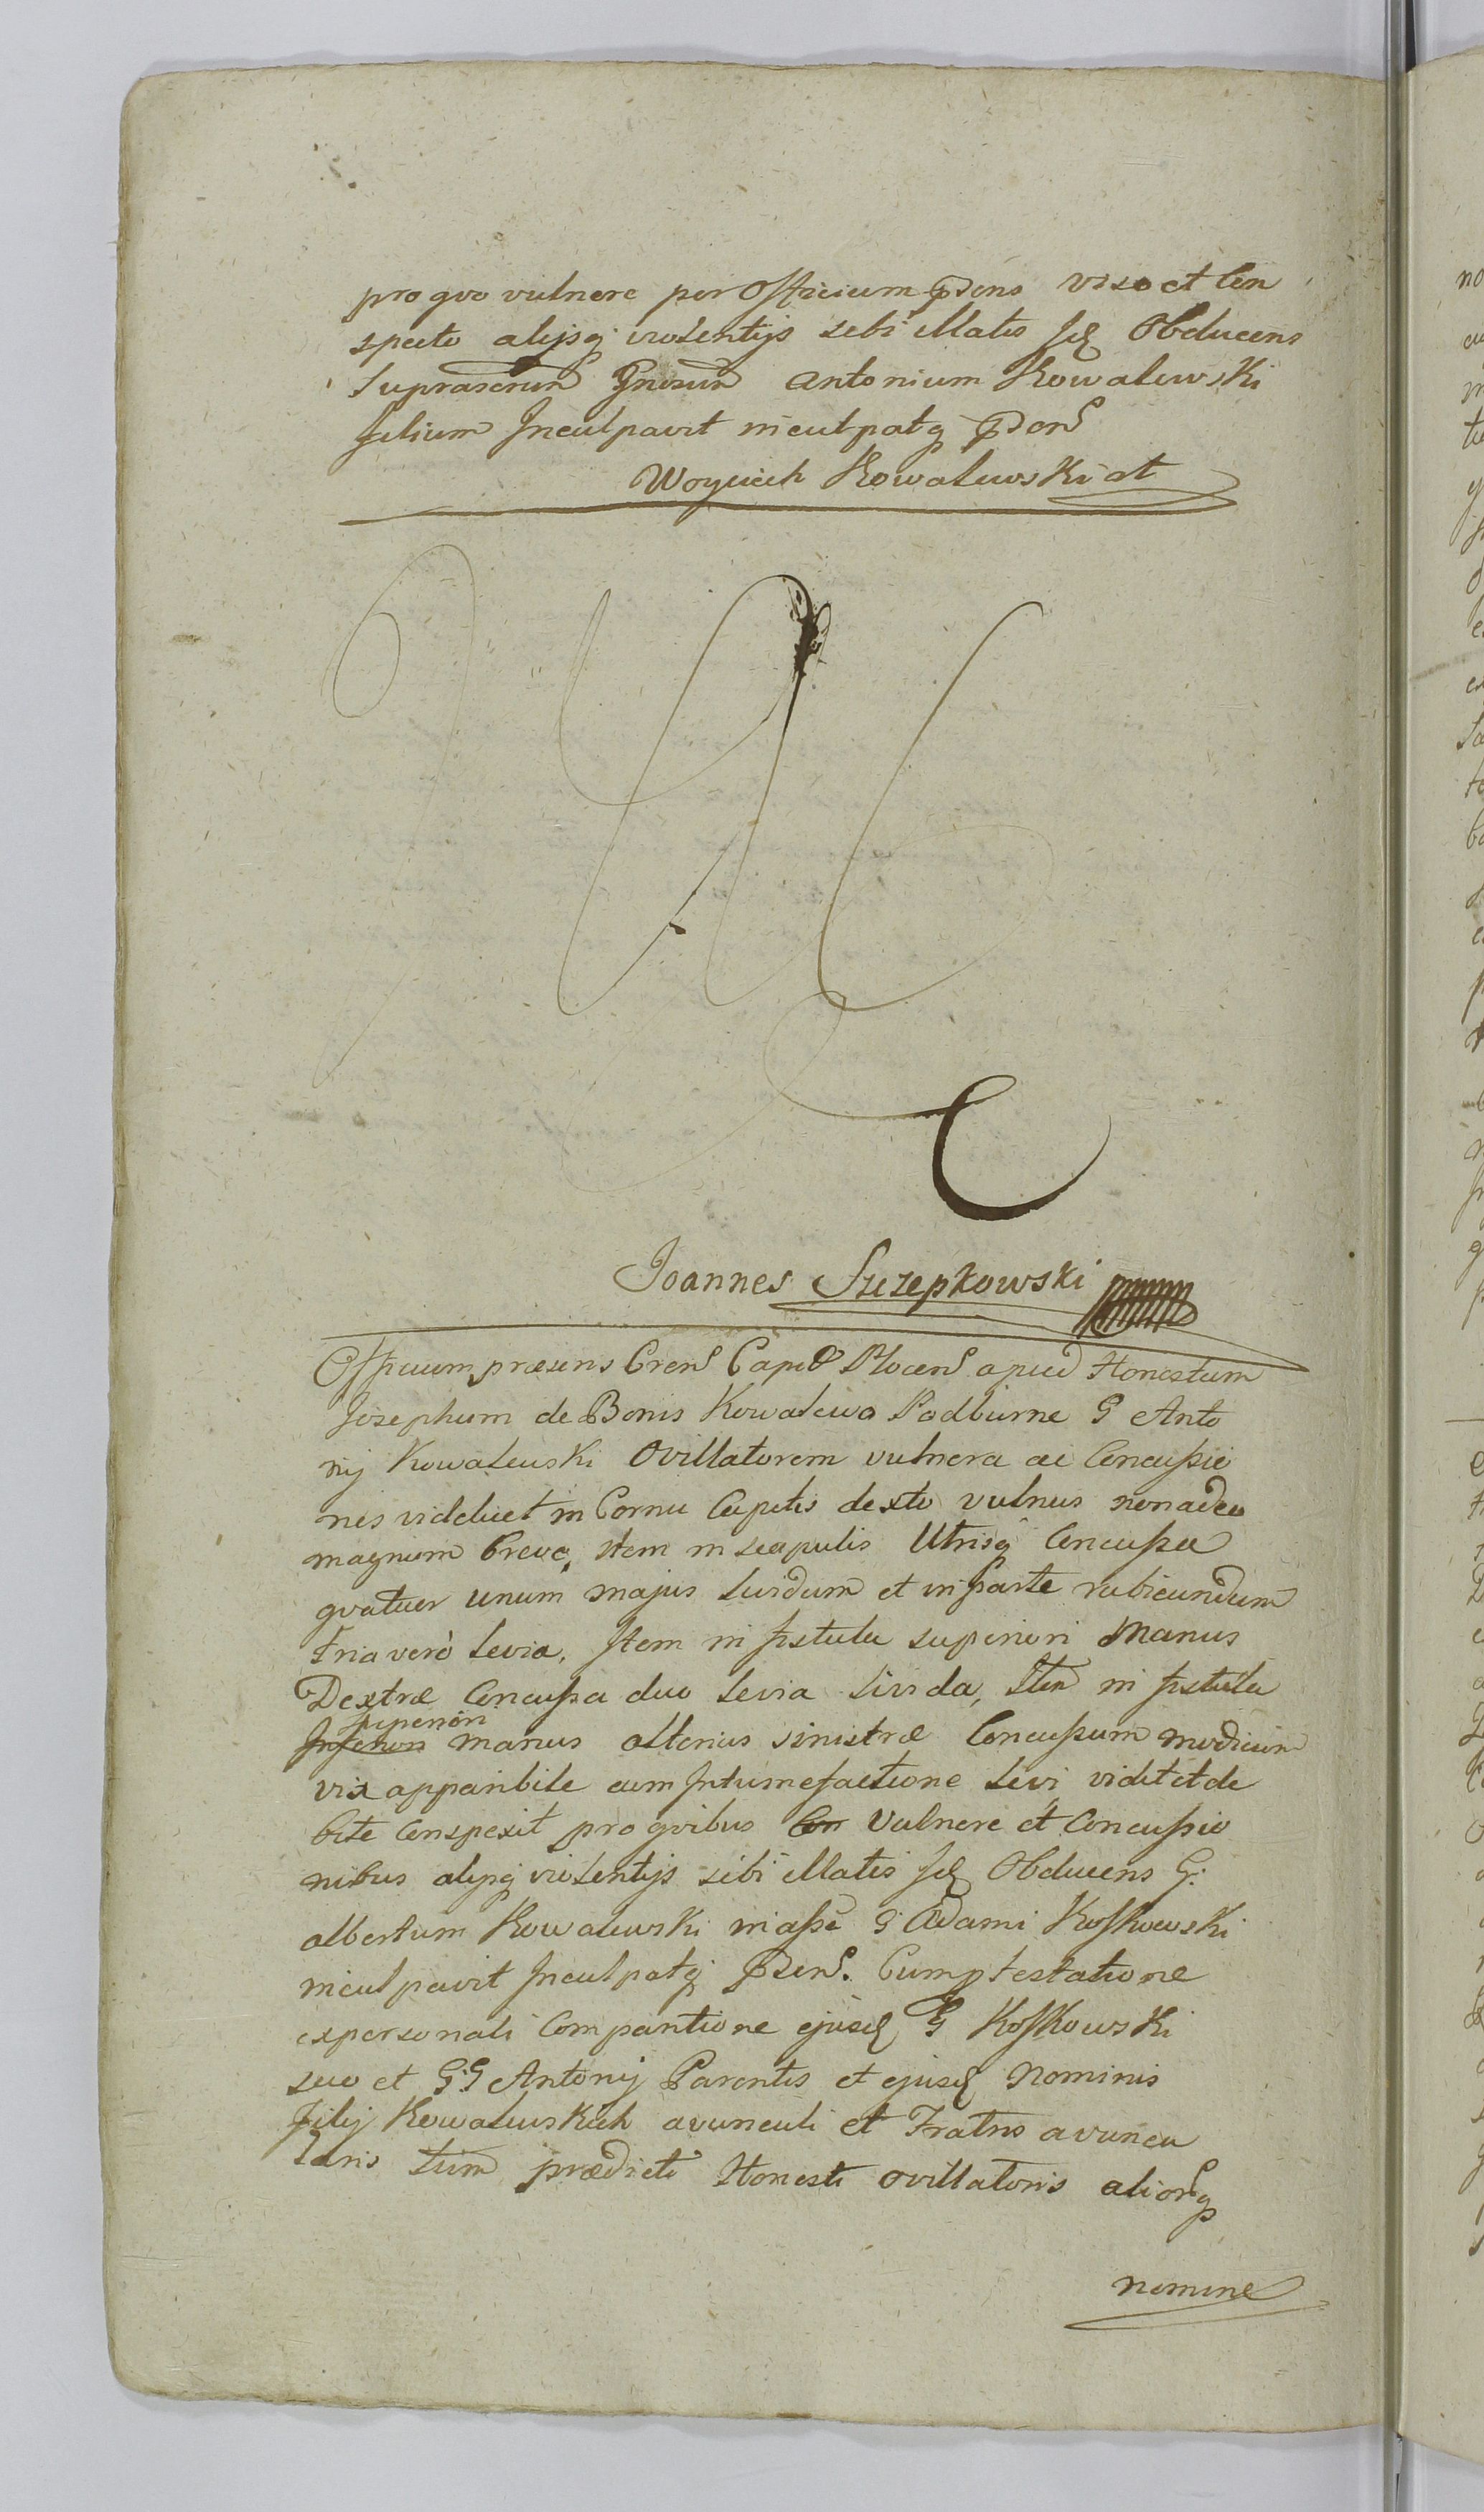 pro qvo vulnere per Officium pdens viso et Con
specto alijsq violentijs sibi illatis Id Obducens
Suprascrum Gnosum Antonium Kowalewski
filium Inculpavit inculpatq pdens
Woyciech Kowalewski at
Joannes Szczepkowski
Officium præsens Crens Capit Plocens apud Honestum
Josephum de Bonis Kowalewo Podburne G Anto
nij Kowalewski Ovillatorem vulnera ac Concussio
nes videlicet in Cornu Capitis dextro vulnus non adeo
magnum breve, item in scapulis Utrisq Concussa
qvatuor unum majus lividum et in parte rubicundum
tria verò levia, Item in fistula superiori Manus
Dextræ Concussa duo levia livida, Item in fistula
superiori
Inferiori manus alterius sinistræ Concussum modicum
vix apparibile cum Intumefactione levi, vidit et de
bite Conspexit pro qvibus Con Vulnere et Concussio
nibus alijsq violentijs sibi illatis Id Obducens G:
Albertum Kowalewski in asse G Adami Koskowski
inculpavit Inculpatq pdens. Cum ptestatione
ex personali Comparitione ejusd G Koskowski
suo et G:G Antonij Parentis et ejusd Nominis
Filij Kowalewskich avunculi et Fratris avuncu
laris tum prædicti Honesti Ovillatoris aliorq
nomine